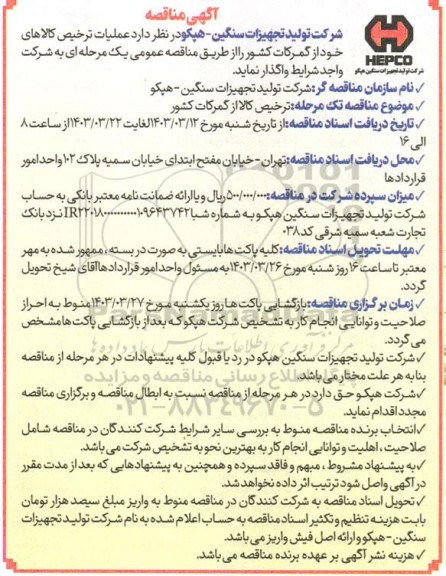 آگهی مناقصه
شرکت تولید تجهیزات سنگین - هپکو در نظر دارد عملیات ترخیص کالاهای
خود از گمرکات کشور را از طریق مناقصه عمومی یک مرحله ای به شرکت
واجد شرایط واگذار نماید.
HEPCO
شرکت تولید تجهیزات سنگین هپکو
✓نام سازمان مناقصه گر: شرکت تولید تجهیزات سنگین - هپکو
✓موضوع مناقصه تک مرحله: ترخیص کالا از گمرکات کشور
✓تاریخ دریافت اسناد مناقصه: از تاریخ شنبه مورخ ۱۴۰۳/۰۳/۱۲ لغایت ۱۴۰۳/۰۳/۲۲ از ساعت ۸
الی ۱۶
✓محل دریافت اسناد مناقصه: تهران - خیابان مفتح ابتدای خیابان سمیه پلاک ۱۰۲ واحد امور
قراردادها
✓میزان سپرده شرکت در مناقصه: ۵۰۰/۰۰۰/۰۰۰ ریال و یا ارائه ضمانت نامه معتبر بانکی به حساب
شرکت تولید تجهیزات سنگین هپکو به شماره شبا نزد بانک
تجارت شعبه سمیه شرقی کد ۰۳۸
✓مهلت تحویل اسناد مناقصه: کلیه پاکت ها بایستی به صورت در بسته، ممهور شده به مهر
معتبر تا ساعت ۱۶ روز شنبه مورخ ۱۴۰۳/۰۳/۲۶ به مسئول واحد امور قراردادها آقای شیخ تحویل
گردد.
✓زمان برگزاری مناقصه: بازگشایی پاکت ها روز یکشنبه مورخ ۱۴۰۳/۰۳/۲۷ منوط به احراز
صلاحیت و توانایی انجام کار به تشخیص شرکت هپکو که بعد از بازگشایی پاکت ها مشخص
می گردد.
✓شرکت تولید تجهیزات سنگین هپکو در رد یا قبول کلیه پیشنهادات در هر مرحله از مناقصه
بنا به هر علت مختار می باشد.
✓شرکت هپکو حق دارد در هر مرحله از مناقصه نسبت به ابطال مناقصه و برگزاری مناقصه
مجدد اقدام نماید.
✓انتخاب برنده مناقصه منوط به بررسی سایر شرایط شرکت کنندگان در مناقصه شامل
صلاحیت، اهلیت و توانایی انجام کار به بهترین نحو به تشخیص شرکت می باشد.
✓به پیشنهاد مشروط، مبهم و فاقد سپرده و همچنین به پیشنهادهایی که بعد از مدت مقرر
در آگهی واصل شود ترتیب اثر داده نخواهد شد.
✓تحویل اسناد مناقصه به شرکت کنندگان در مناقصه منوط به واریز مبلغ سیصد هزار تومان
بابت هزینه تنظیم و تکثیر اسناد مناقصه به حساب اعلام شده به نام شرکت تولید تجهیزات
سنگین - هپکو و ارائه اصل فیش واریز می باشد.
✓هزینه نشر آگهی بر عهده برنده مناقصه می باشد.
۰۲۱-۸۸۳۴۹۶۷۰-۵